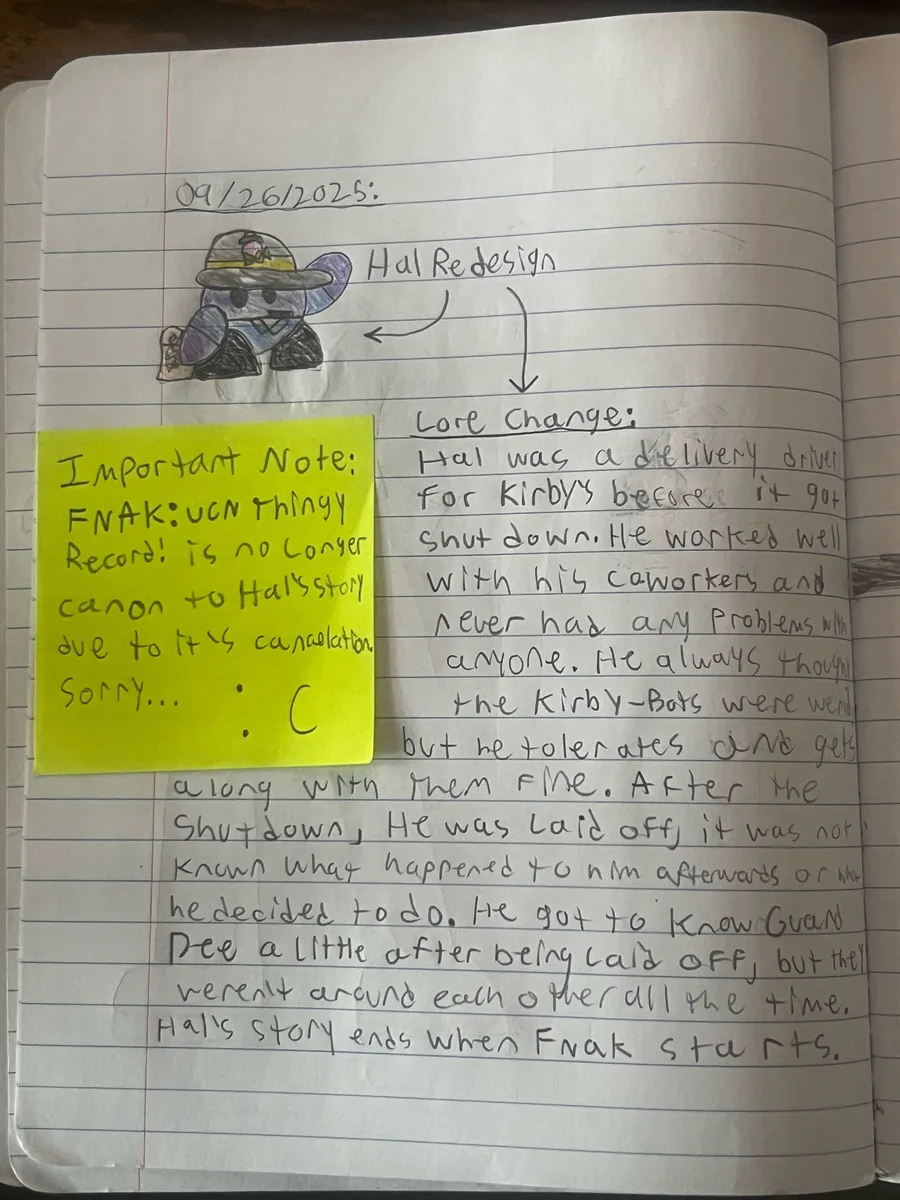 09/26/2025:
Hal Redesign
Important Note:
FNAK:UCN Thingy
Record! is no longer
canon to Hal's story
due to it's cancelation.
Sorry... : C
Lore Change:
Hal was a delivery driver
for Kirby's before it got
shut down. He worked well
with his coworkers and
never had any problems with
anyone. He always thought
the Kirby-Bots were weird
but he tolerates and gets
along with them fine. After the
shutdown, He was laid off, it was not
known what happened to him afterwards or what
he decided to do. He got to know Guard
Dee a little after being laid off, but they
weren't around each other all the time.
Hal's story ends when Fnak starts.